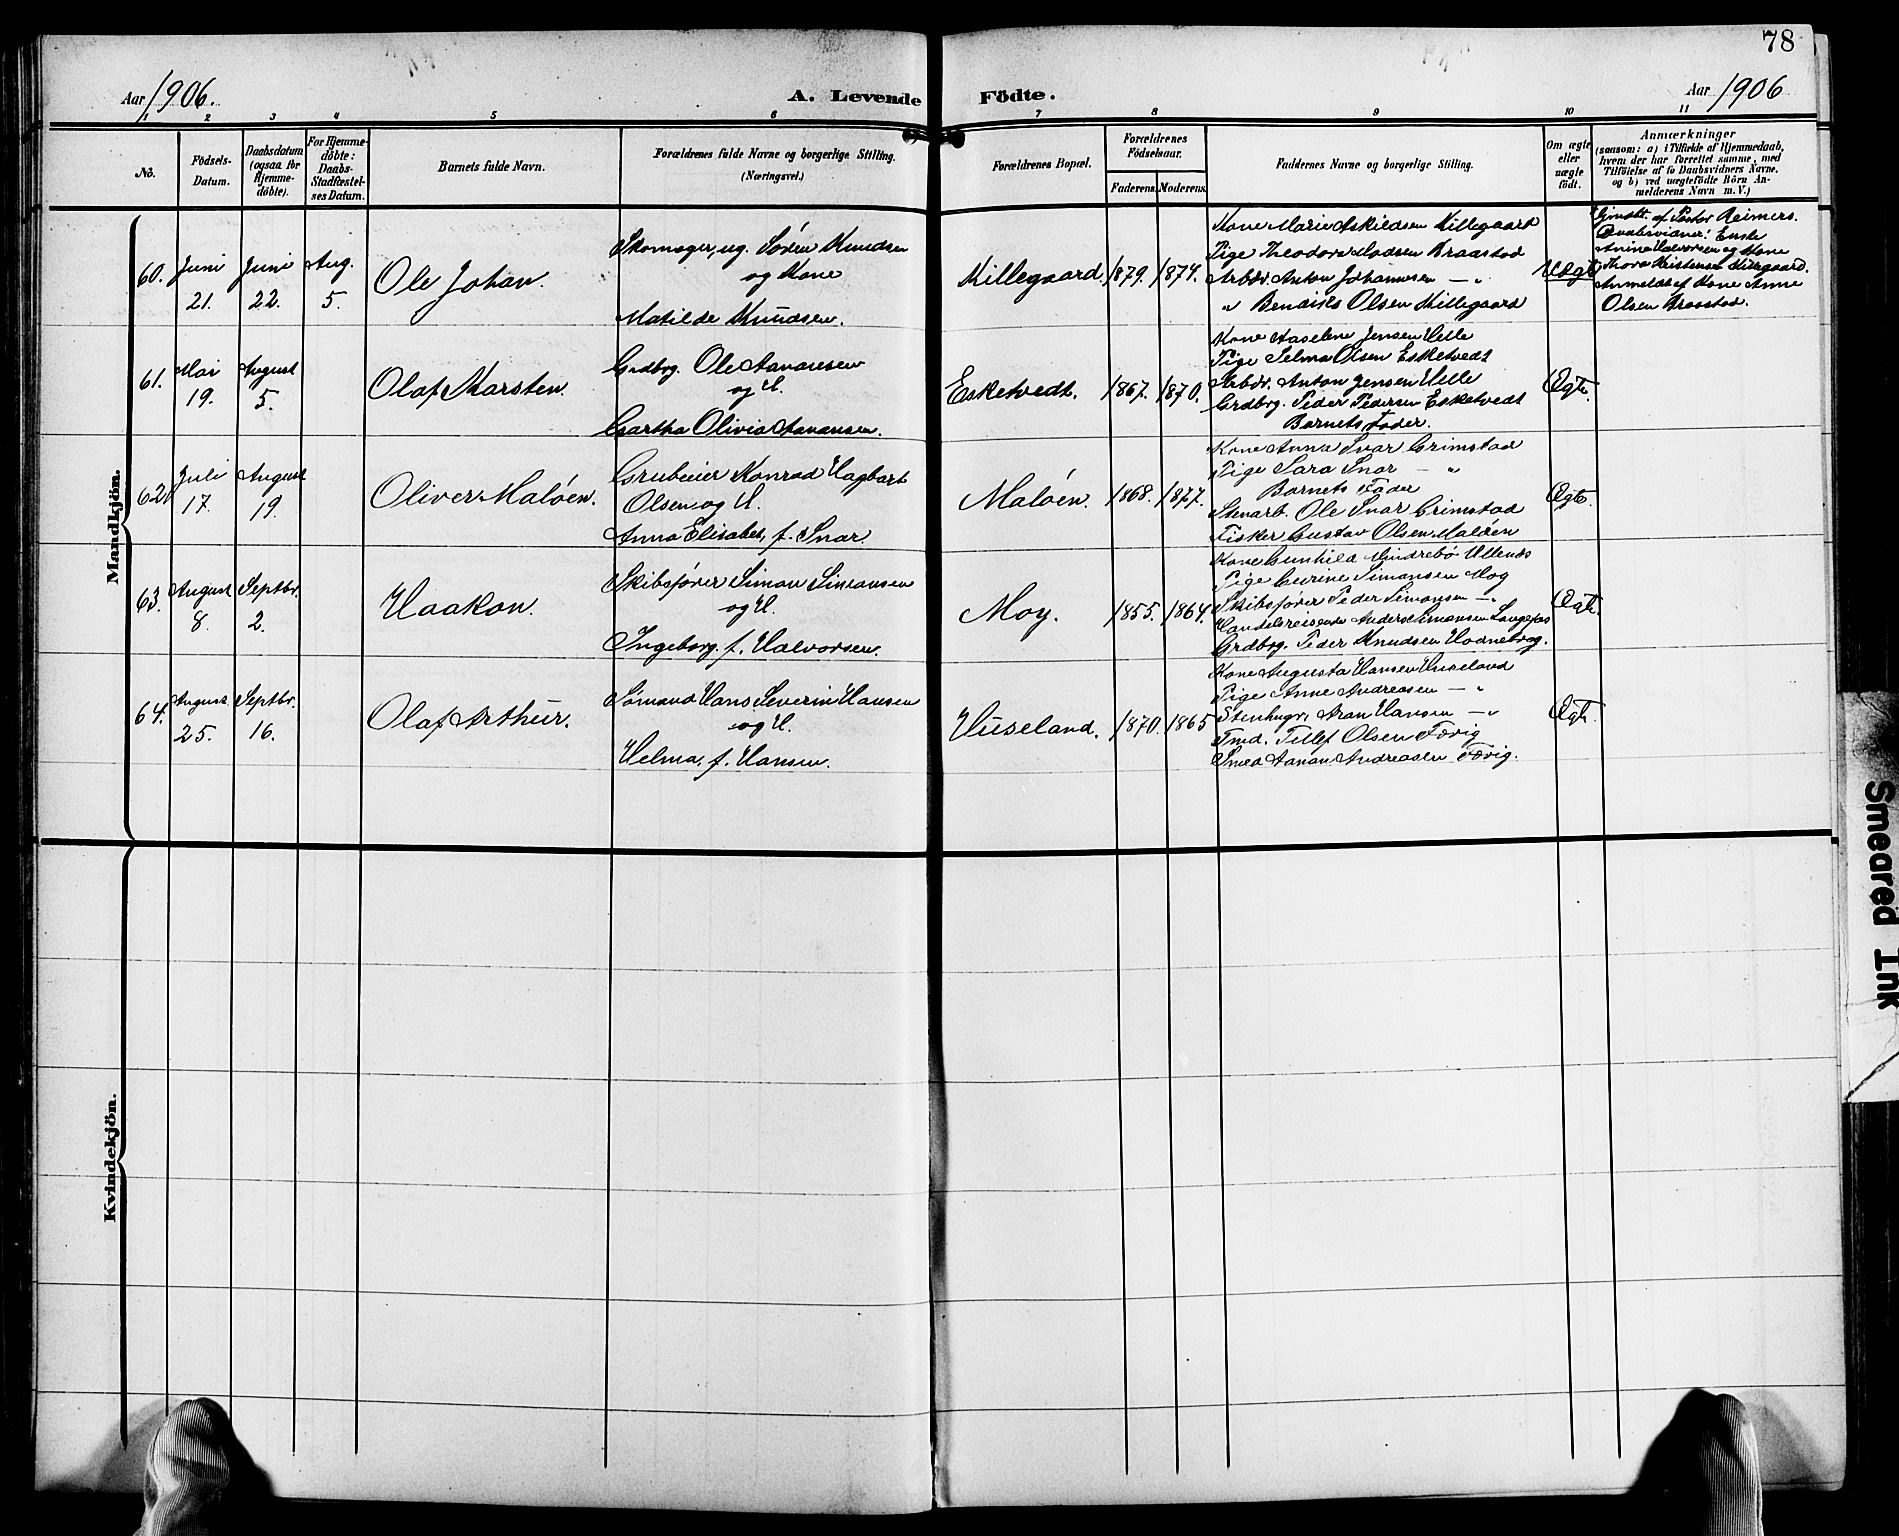 78
Aar 1906.
A. Levende Födte.
Aar 1906
1 2 3 4 5 6 7 8 9 10 11
No.
Födsels-
Datum.
Daabsdatum
(ogsaa for
Hjemme-
döbte).
For Hjemme-
döbte:
Daabs-
Stadfæstel-
ses Datum.
Barnets fulde Navn.
Forældrenes fulde Navne og borgerlige Stilling.
(Næringsvei.)
Forældrenes Bopæl.
Forældrenes
Födselsaar.
Faderens. Moderens.
Faddernes Navne og borgerlige Stilling.
Om ægte
eller
uægte
födt.
Anmærkninger
(saasom: a) i Tilfælde af Hjemmedaab,
hvem der har forrettet samme, med
Tilföielse af to Daabsvidners Navne.
og b) ved uægtefödte Börn An-
melderens Navn m. V.)
Mandkjön.
60.
Juni
21.
Juni
22.
Aug.
5.
Ole Johan.
Skomager, ug. Sören Knudsen
og Kone
Matilde Knudsen.
Killegaard.
1879.
1874.
Kone Marie Askildsen Killegaard
Pige Theodora Madsen Braastad
Arbdr. Anton Johannesen — „
„ Bendiks Olsen Killegaard
Uægte
Hjmdbt. af Pastor Reimers.
Daabsvidner: Enke
Anine Halvorsen og Kone
Thora Kristensen Killegaard.
Anmeldt af Kone Anne
Olsen Braastad.
61.
Mai
19.
August
5.
Olaf Karsten.
Grdbrg. Ole Aanansen
og H.
Gartha Olivia Aanansen.
Esketvedt.
1867.
1870.
Kone Aaselene Jensen Helle
Pige Selma Olsen Esketvedt
Arbdr. Anton Jensen Helle
Grdbrg. Peder Pedersen Esketvedt
Barnets Fader.
Ægte.
62.
Juli
17.
August
19.
Oliver Malöen.
Grubeeier Konrad Hagbart
Olsen og H.
Anna Elisabet, f. Svar.
Malöen.
1868.
1877.
Kone Anna Svar Grimstad
Pige Sara Svar — „
Barnets Fader
Stenarb. Ole Svar Grimstad
Fisker Gustav Olsen Malöen
Ægte.
63.
August
8.
Septbr.
2.
Haakon.
Skibsförer Simon Simonsen
og H.
Ingeborg f. Halvorsen.
Moy.
1855.
1864.
Kone Gunhild Mindrebö
Pige Gurine Simonsen Moy
Skibsförer Peder Simonsen — „
Handelsreisende Anders Simonsen
Grdbrg. Peder Knudsen Hodnebrog.
Ægte.
64.
August
25.
Septbr.
16.
Olaf Arthur.
Sömand Hans Severin Hansen
og H.
Helma, f. Hansen.
Huseland.
1870.
1865
Kone Augusta Hansen Huseland
Pige Anne Andreasen — „
Stenhugr. Aran Hansen — „
Tmd. Tellef Olsen Færvig
Smed Aanan Andreasen Færvig.
Ægte.
Kvindekjön.
Smeared Ink